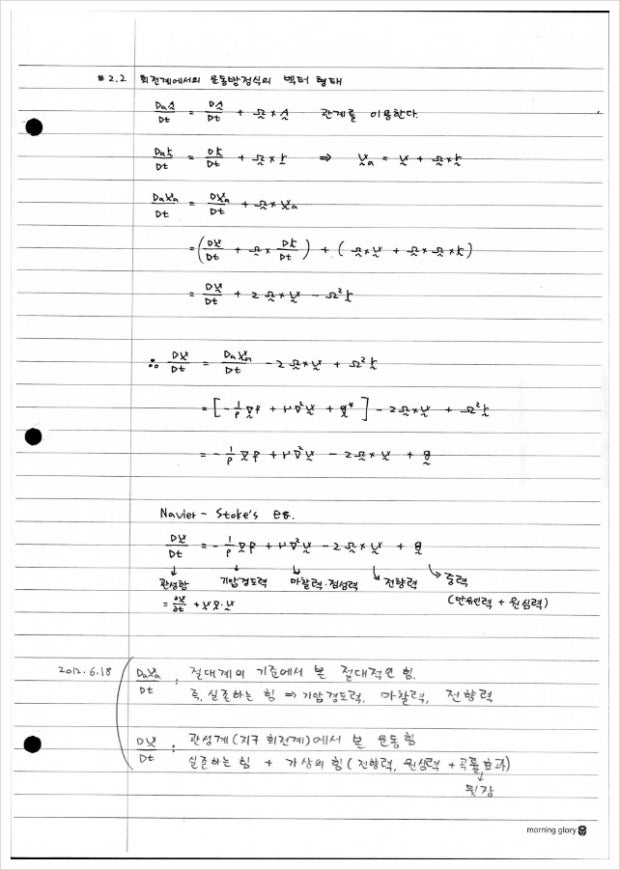 #2.2 회전계에서의 운동방정식의 벡터 형태
DaA/Dt = DA/Dt + Ω×A 관계를 이용한다.
Dar/Dt = Dr/Dt + Ω×r ⇒ Va = V + Ω×r
DaVa/Dt = DVa/Dt + Ω×Va
= (DV/Dt + Ω×Dr/Dt) + (Ω×V + Ω×Ω×r)
= DV/Dt + 2Ω×V - Ω²r
∴ DV/Dt = DaVa/Dt - 2Ω×V + Ω²r
= [-1/ρ ∇P + ν∇²V + g*] - 2Ω×V + Ω²r
= -1/ρ ∇P + ν∇²V - 2Ω×V + g
Navier - Stoke's eq.
DV/Dt = -1/ρ ∇P + ν∇²V - 2Ω×V + g
관성항 기압경도력 마찰력·점성력 전향력 중력
= ∂V/∂t + V∇·V (만유인력 + 원심력)
2012.6.18 DaVa/Dt : 절대계의 기준에서 본 절대적인 힘.
즉, 실존하는 힘 ⇒ 기압경도력, 마찰력, 전향력
DV/Dt : 관성계(지구 회전계)에서 본 운동힘
실존하는 힘 + 가상의 힘(전향력, 원심력 + 곡률효과)
morning glory